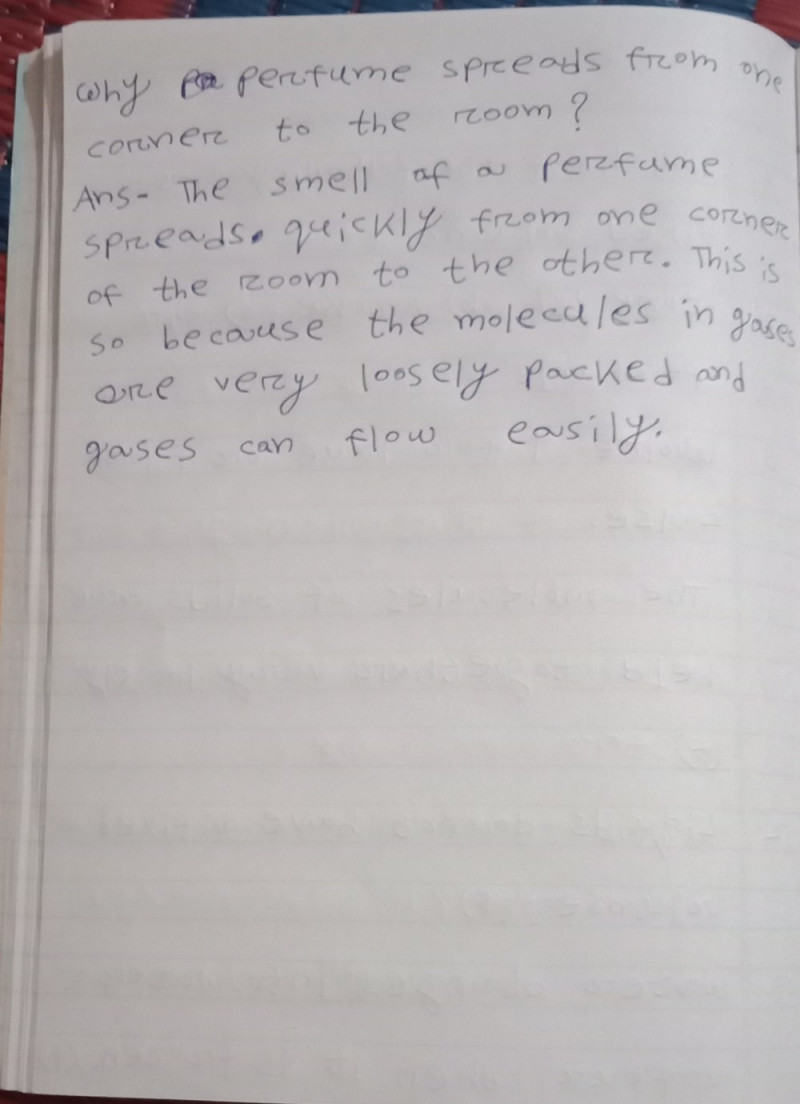 Why perfume spreads from one
corner to the room?
Ans- The smell of a perfume
spreads. quickly from one corner
of the room to the other. This is
so because the molecules in gases
are very loosely packed and
gases can flow easily.